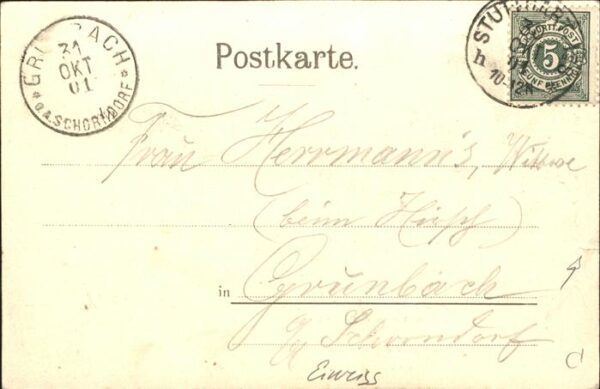 GRUNBACH
31
OKT
01
O.A.SCHORNDORF
Postkarte.
STUTTGART
h
10-12N
K.WÜRTT.POST
5
FÜNF PFENNIG
Frau Herrmann's, Witwe
(beim Hirsch)
in Grunbach
O/A Schorndorf
Einreiss